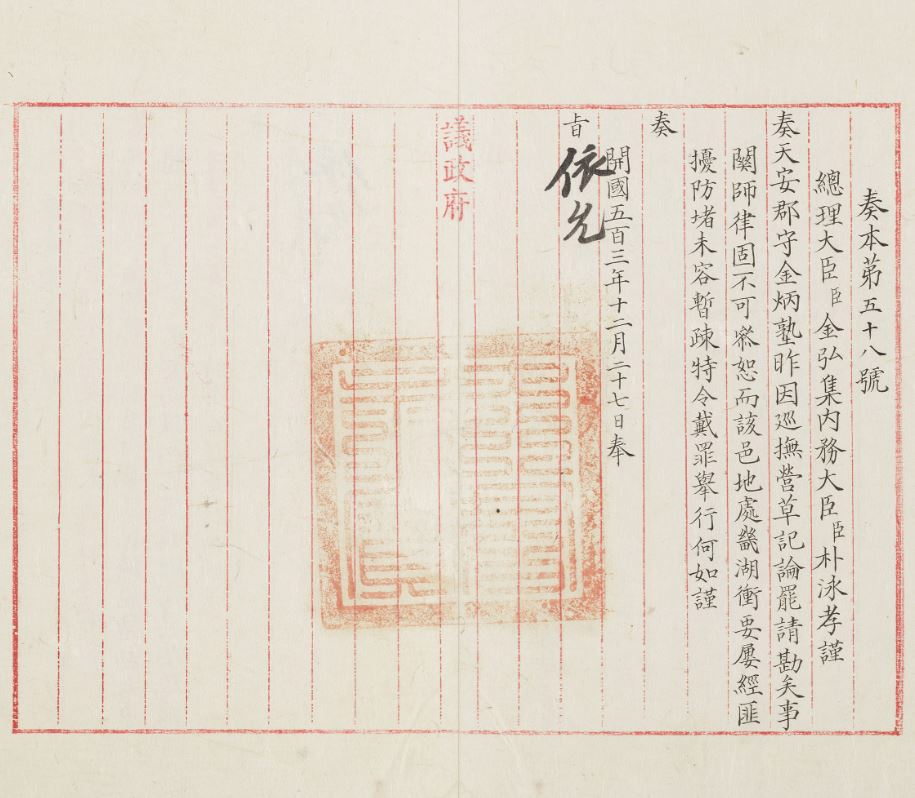 奏本第五十八號
總理大臣臣金弘集內務大臣臣朴泳孝謹
奏天安郡守金炳塾昨因巡撫營草記論罷請勘矣事
關師律固不可叅恕而該邑地處畿湖衝要屢經匪
擾防堵未容暫疎特令戴罪舉行何如謹
奏
開國五百三年十二月二十七日奉
旨依允
議政府